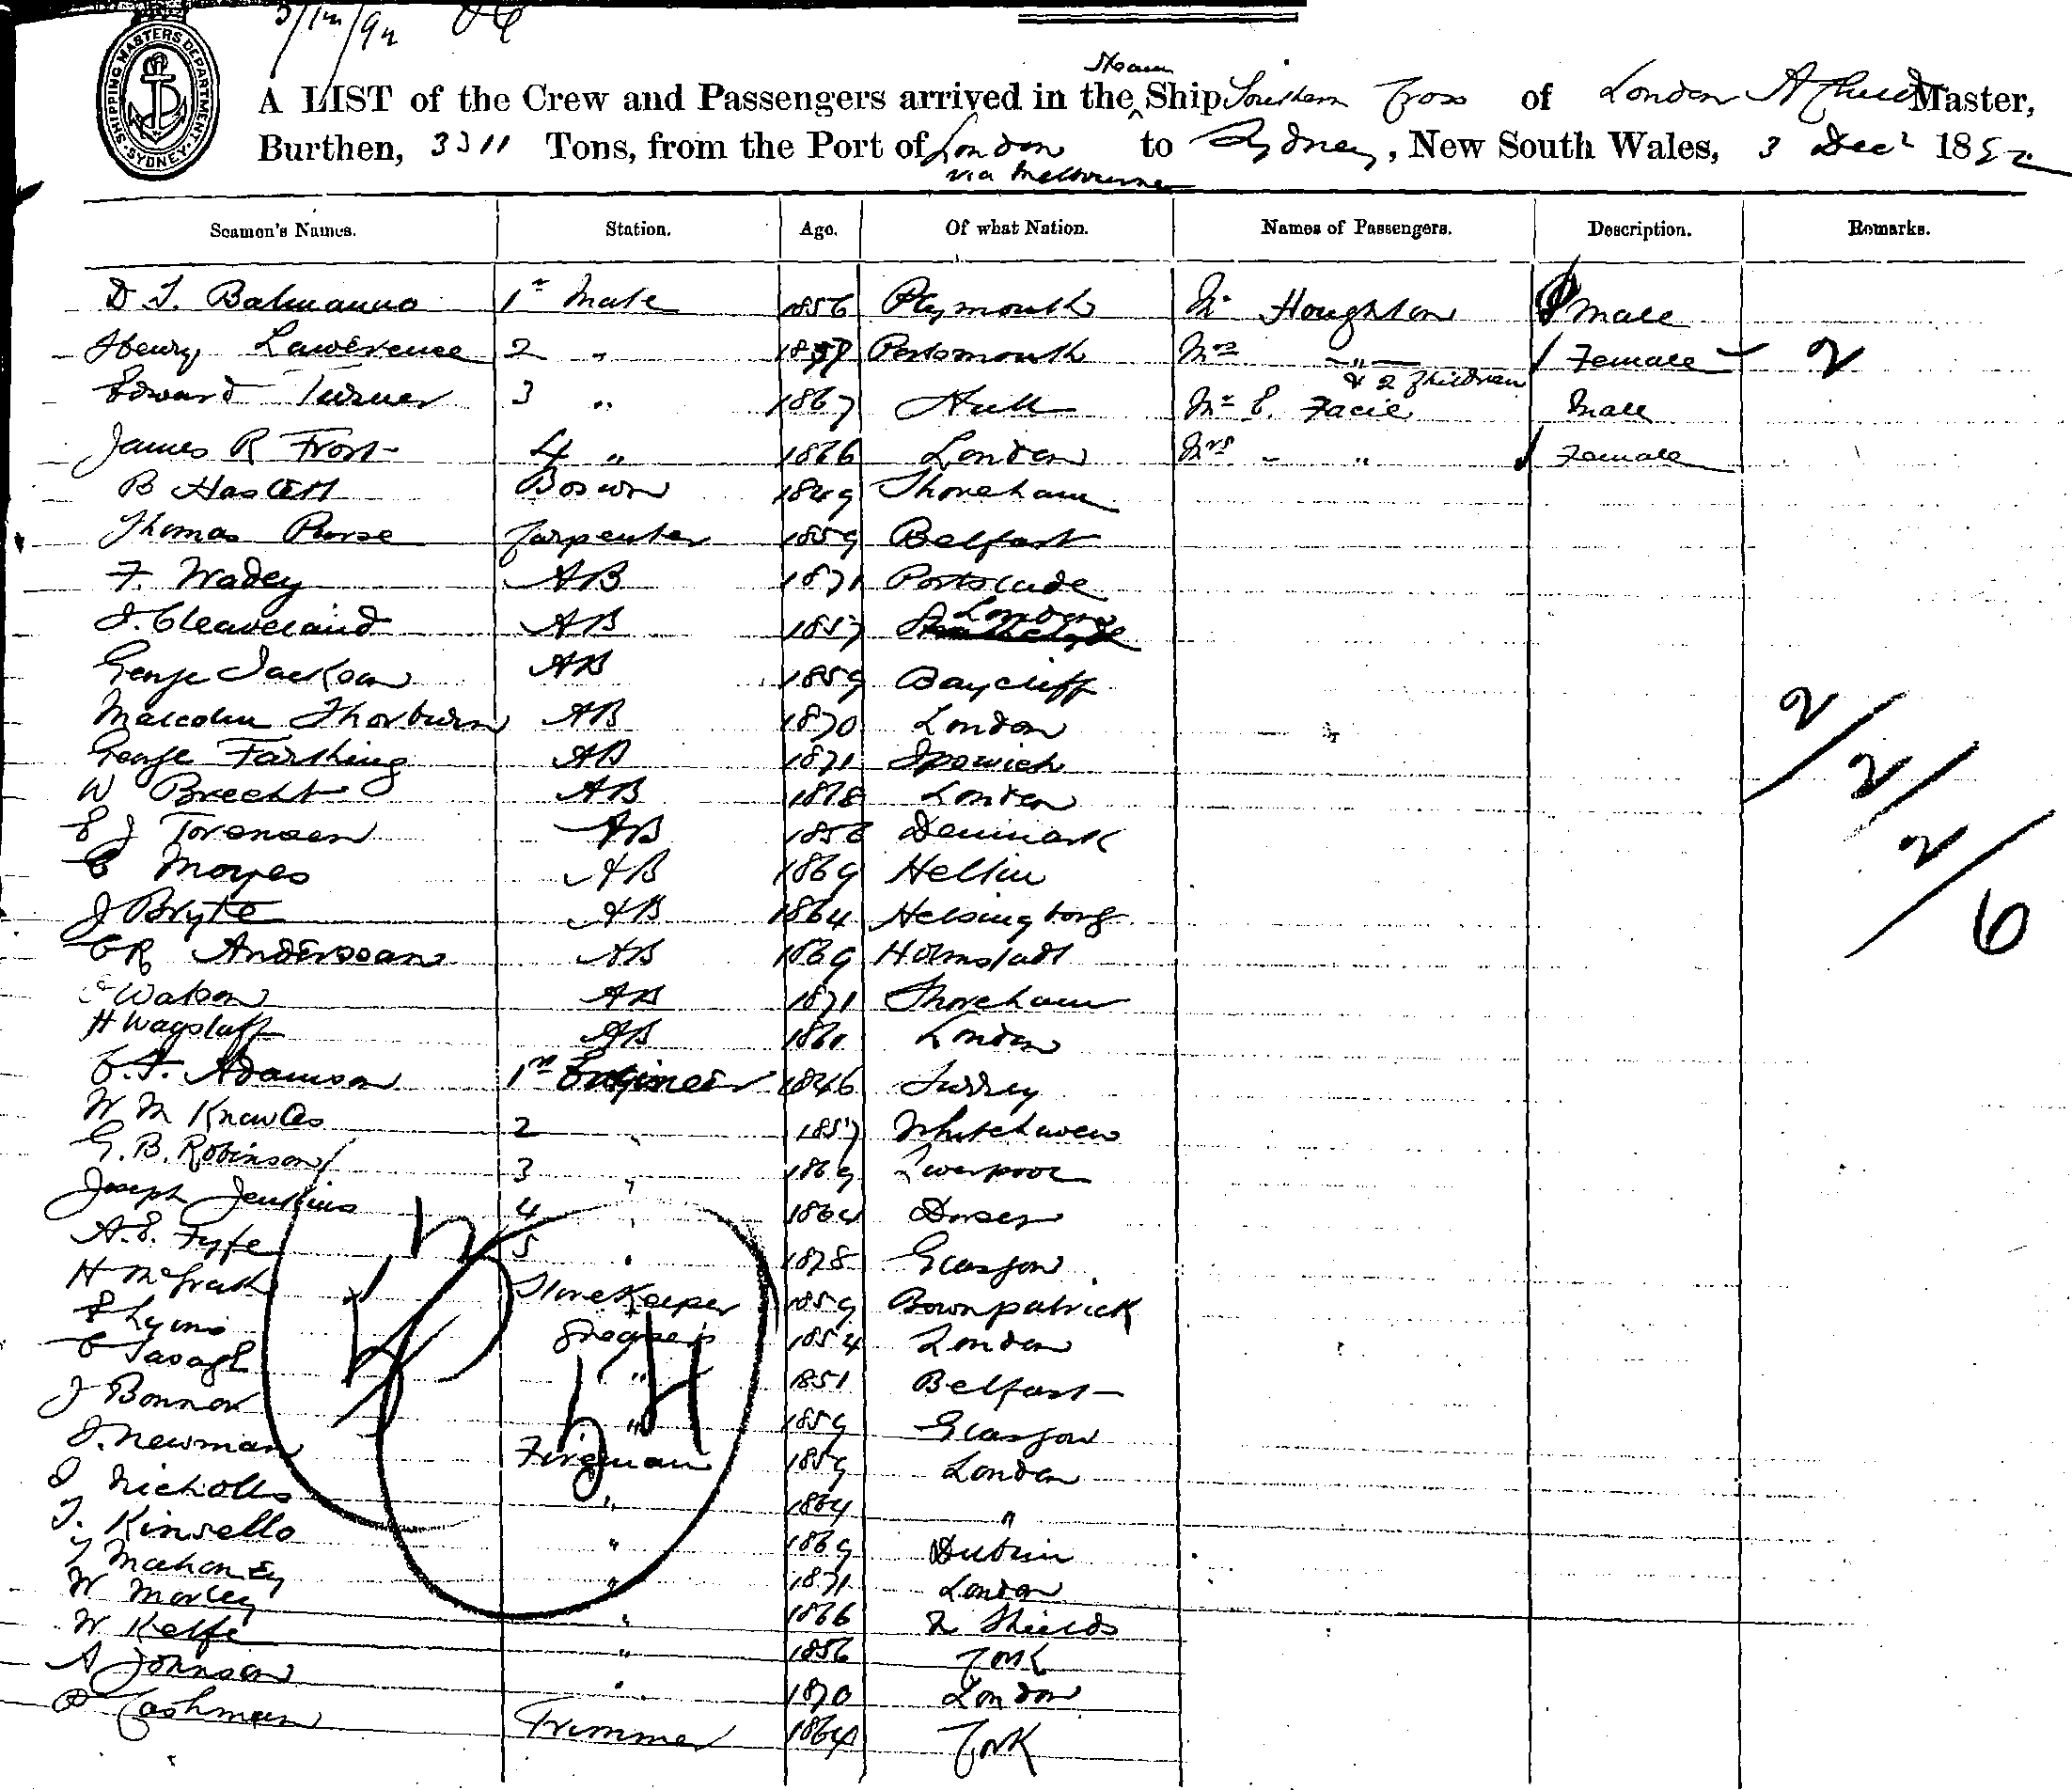 3/12/92
SHIPPING MASTERS DEPARTMENT
SYDNEY
Steam
A LIST of the Crew and Passengers arrived in the Ship Southern Cross of London A Child Master,
Burthen, 3311 Tons, from the Port of London to Sydney, New South Wales, 3 Decr 1892
via Melbourne
Seamen's Names. Station. Age. Of what Nation. Names of Passengers. Description. Remarks.
D T. Balmanno 1st Mate 1856 Plymouth Mr Houghton Male
Henry Lawerence 2 " Portsmouth Mrs " Female 2
& 2 Children
Edward Turner 3 " 1867 Hull Mr E. Facie Male
James R Frost 4 " 1866 London Mrs " " Female
B Haslett Bosun 1849 Shoreham
Thomas Purse Carpenter 1859 Belfast
F. Wadey AB 1871 Portslade
J. Cleaveland AB 1857 London
George Jackson AB 1859 Baycliff
Malcolm Thorburn AB 1870 London
George Farthing AB 1871 Ipswich
W Brecht AB 1868 London
E J Torensen AB 1856 Denmark
C Moyes AB 1869
J Bryte AB 1864 Helsingborg
C R Anderssan AB 1869 Holmstadt
Watson AB 1871 Shoreham
H Wagstaff AB 1861 London
C. T. Adamson 1st Engineer 1846 Surrey
W M Knowles 2 " 1857 Whitehaven
G. B. Robinson 3 " 1869 Liverpool
Joseph Jenkins 4 " 1864 Dorset
A. E. Fyfe 5 " 1878 Glasgow
H McGrath StoreKeeper 1859 Downpatrick
Lyons Greasers 1854 London
C Tasagh " 1851 Belfast
J Bonnor " 1859 Glasgow
J. Newman Fireman 1859 London
J Nicholls " 1864 "
T. Kinsello " 1869 Dublin
Mahoney " 1871 London
W Morley " 1866 N Shields
W. Kelfe " 1856 Cork
A Johnson " 1870 London
P Cashman Trimmer 1864 Cork
2/
2/
2/
6